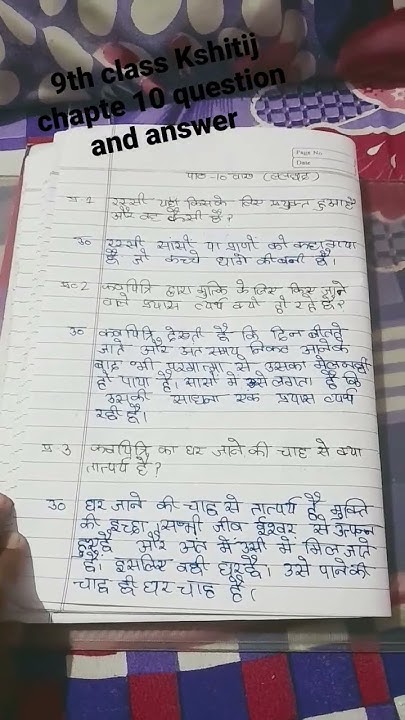 9th class Kshitij
chapte 10 question
and answer
Page No.
Date
पाठ-10 वाख (ललद्यद)
प्र 1 रस्सी यहाँ किसके लिए प्रयुक्त हुआ है
और वह कैसी है?
उ० रस्सी सांसों या प्राणों को कहा गया
है जो कच्चे धागे की बनी है।
प्र०2 कवयित्रि द्वारा मुक्ति के लिए किए जाने
वाले प्रयास व्यर्थ क्यों हो रहे है?
उ० कवयित्रि देखती है कि दिन बीतते
जाते और अंत समय निकट आनेके
बाद भी परमात्मा से उसका मेल नही
हो पाया है। सासों में उसे लगता है कि
उसकी साधना एक प्रयास व्यर्थ
रही है।
प्र 3 कवयित्रि का घर जाने की चाह से क्या
तात्पर्य है?
उ० घर जाने की चाह से तात्पर्य है मुक्ति
की इच्छा। सभी जीव ईश्वर से उत्पन
हुए है और अंत में उसी में मिल जाते
है। इसलिए वही घर है। उसे पानेकी
चाह ही घर चाह है।